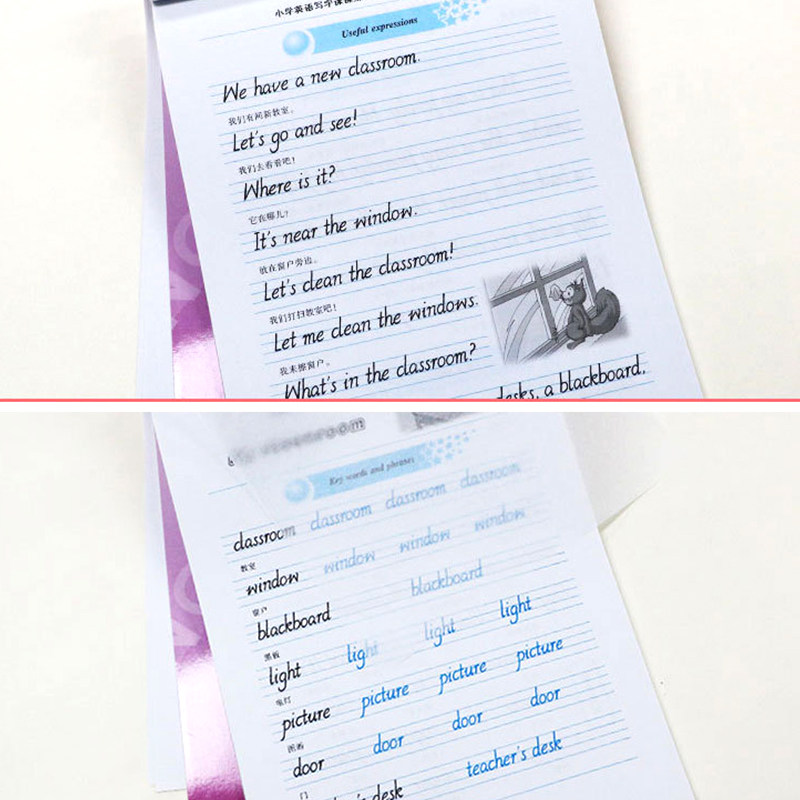 小学英语写字课课练
Useful expressions
We have a new classroom.
我们有间新教室。
Let's go and see!
我们去看看吧！
Where is it?
它在哪儿？
It's near the window.
放在窗户旁边。
Let's clean the classroom!
我们打扫教室吧！
Let me clean the windows.
我来擦窗户。
What's in the classroom?
desks, a blackboard,
classroom
Key words and phrases
classroom classroom classroom classroom
教室
window window window window
窗户
blackboard blackboard
黑板
light light light light
电灯
picture picture picture picture
图画
door door door door
门
desk teacher's desk